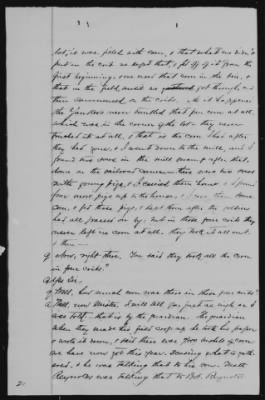 lot, it was piled with corn, & that what we didn't
put in the crib we kept that, & fed off of it from the
first beginning; one used that corn in the pen, &
that in the field, until we got through, and
then commenced on the cribs. As it happened
the Yankees never troubled that pen corn at all,
which was in the corner of the lot; they never
touched it at all, & that is the corn I had after
they had gone. & I went down to the mill, and I
found two sows in the mill swamp after that,
down on the railroad ; two sows
with young pigs, & I carried them home & I found
four more pigs up to the house, & I gave them some
corn, & fed those pigs, & kept them after the soldiers
had all passed on by; but in those four cribs they
never left no corn at all. They took it all out.
& then —
Q Now, right there. You said they took all the corn
in four cribs?
A Yes Sir,
Q Well, how much corn was there in those four cribs?
A Well, now Mister, I will tell you just as nigh as I
was told - that is by the guardian. The guardian
when they made his field crop up he took his paper
& wrote it down, & said there was 1500 bushels of corn
we have now got this year. Sending what to gath-
ered, & he was talking that to his son. Matt
Reynolds was talking that to Bob. Reynolds